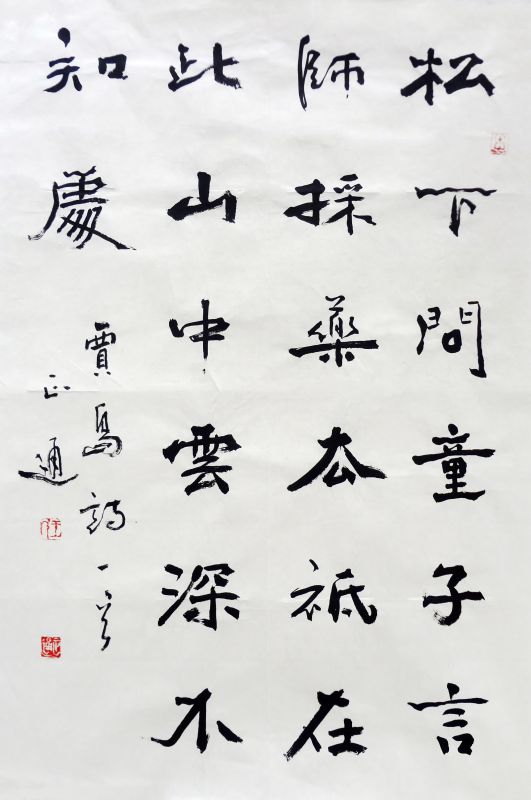 松下問童子言
師採藥去祗在
此山中雲深不
知處
賈島詩一首
正通